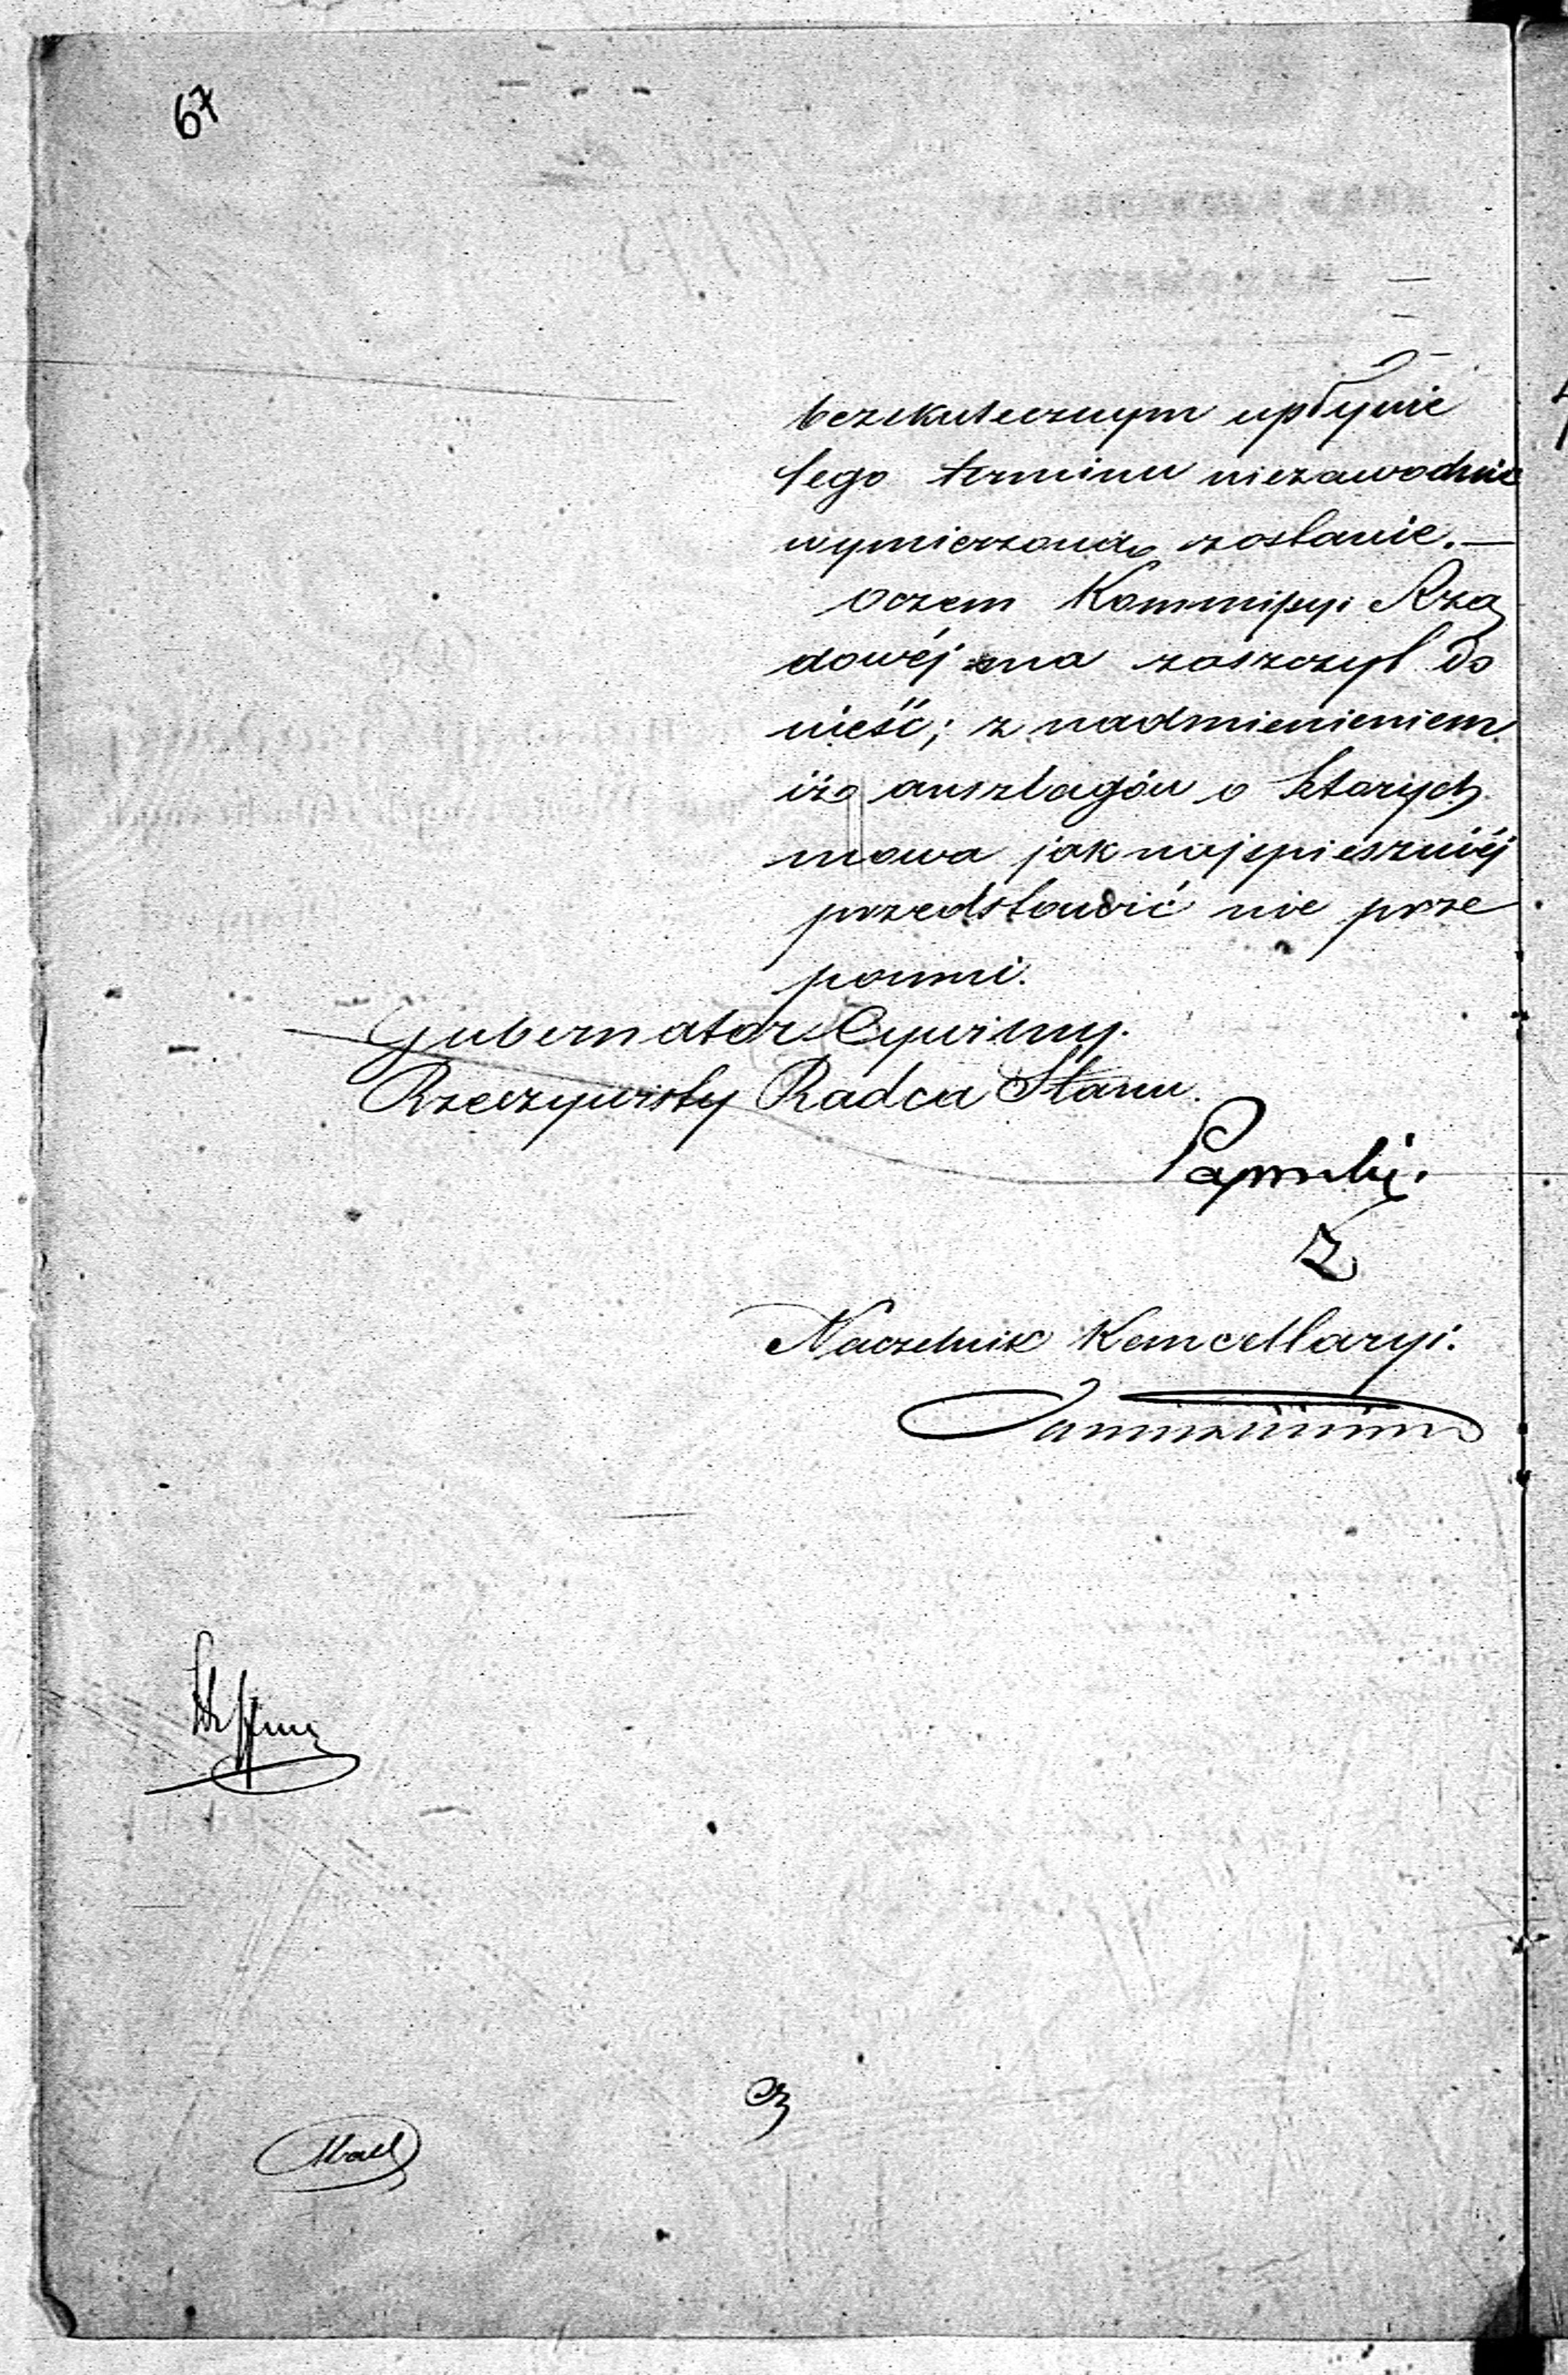 67
bezskutecznym upłynie
tego terminu niezawodnie
wymierzoną zostanie.—
O czem Kommissyi Rzą
dowéj ma zaszczyt do
nieść; z nadmienieniem
iż anszlagów o których
mowa jak najspieszniéj
przedstawić nie prze
pomni.
Gubernator Cywilny.
Rzeczywisty Radca Stanu.
Naczelnik Kancellaryi.